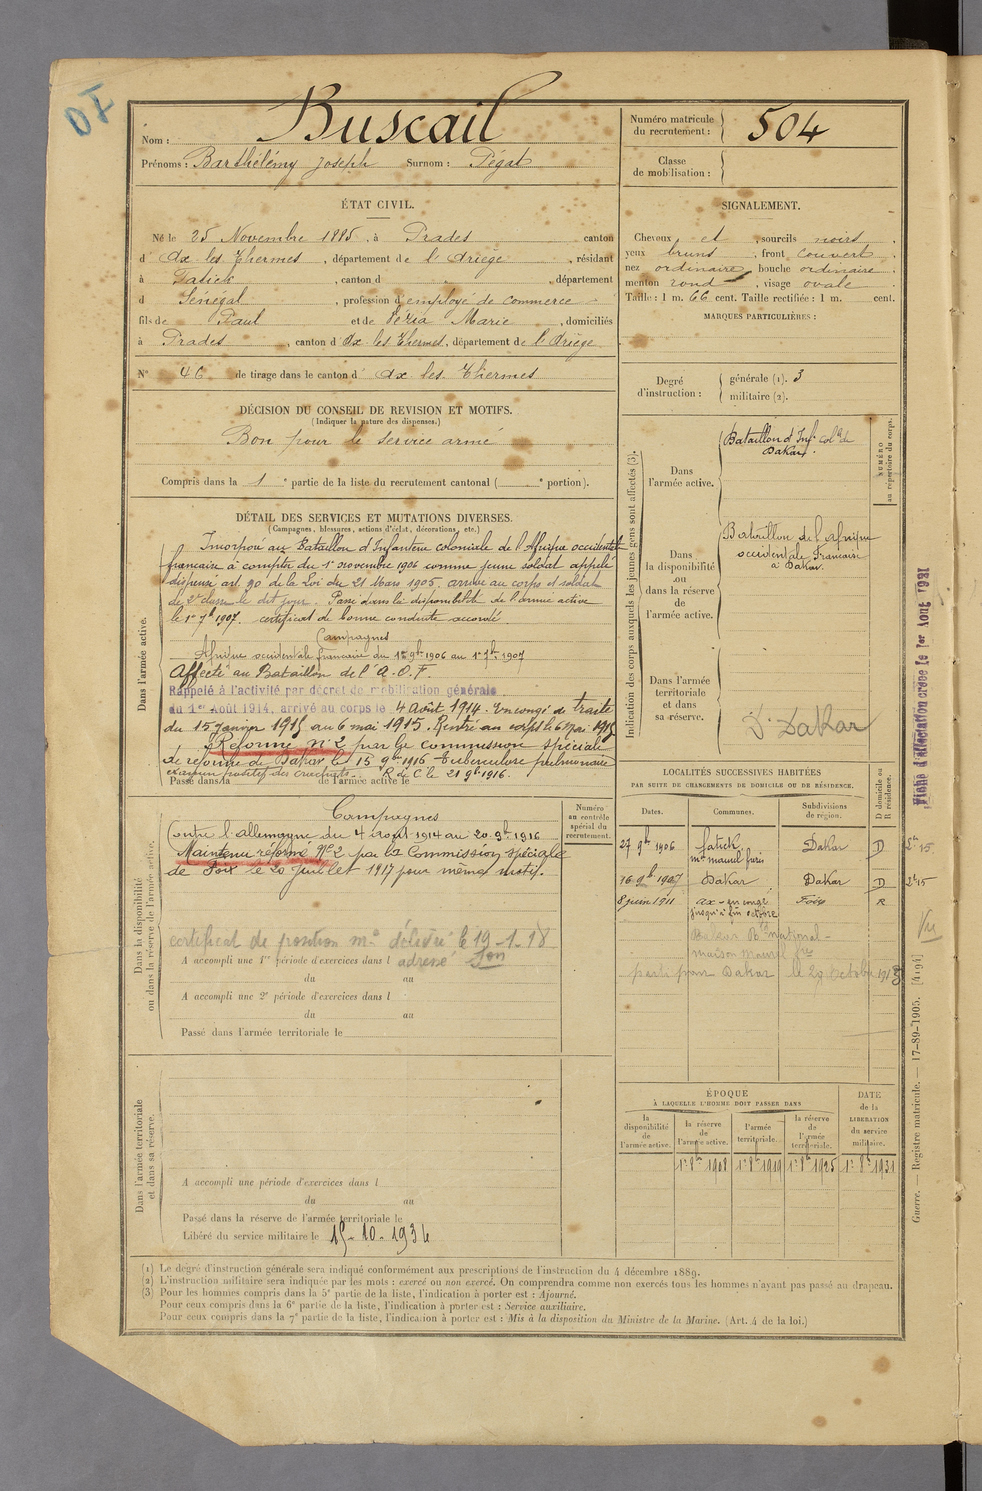 OI
Nom : Buscail
Prénoms : Barthélémy Joseph Surnom : Pégat
Numéro matricule
du recrutement : 504
Classe
de mobilisation :
ÉTAT CIVIL.
Né le 25 Novembre 1885, à Prades canton
d' Ax les Thermes, département de l'Ariège, résidant
à Fatick, canton d , département
d Sénégal, profession d'employé de commerce
fils de Paul et de Péria Marie, domiciliés
à Prades, canton d'Ax les Thermes, département de l'Ariège
N° 46 de tirage dans le canton d' Ax les Thermes
SIGNALEMENT.
Cheveux et , sourcils noirs.
yeux bruns, front couvert
nez ordinaire, bouche ordinaire
menton rond, visage ovale
Taille : 1 m. 66 cent. Taille rectifiée : 1 m. cent.
MARQUES PARTICULIÈRES :
Degré
d'instruction :
générale (1). 3
militaire (2).
DÉCISION DU CONSEIL DE REVISION ET MOTIFS.
(Indiquer la nature des dispenses.)
Bon pour le service armé
Compris dans la 1e partie de la liste du recrutement cantonal ( e portion).
DÉTAIL DES SERVICES ET MUTATIONS DIVERSES.
(Campagnes, blessures, actions d'éclat, décorations, etc.)
Dans l'armée active.
Incorporé au Bataillon d'Infanterie coloniale de l'Afrique occidentale
française à compter du 1er novembre 1906 comme jeune soldat appelé
dispensé art. 90 de la Loi du 21 Mars 1905, arrivé au corps et soldat
de 2e classe le dit jour. Passé dans la disponibilité de l'armée active
le 1er 7bre 1907. certificat de bonne conduite accordé.
Campagnes
Afrique occidentale française du 1er 9bre 1906 au 1er 7bre 1907
Affecté au Bataillon de l'A.O.F.
Rappelé à l'activité par décret de mobilisation générale
du 1er Août 1914, arrivé au corps le 4 Août 1914. En congé de traite
du 15 Janvier 1915 au 6 mai 1915. Rentré au corps le 6 Mai 1915
Réformé n° 2 par la commission spéciale
de réforme de Dakar le 15 9bre 1916 Tuberculose pulmonaire
examen positif des crachats. R d C le 21 9bre 1916.
Passé dans la de l'armée active le
Indication des corps auxquels les jeunes gens sont affectés (3).
NUMÉRO
au répertoire du corps.
Dans
l'armée active.
Bataillon d'Inf. Col.le de
Dakar.
Dans
la disponibilité
ou
dans la réserve
de
l'armée active.
Bataillon de l'Afrique
occidentale Française
à Dakar.
Dans l'armée
territoriale
et dans
sa réserve.
D. Dakar
Fiche d'affectation créée le 1er Août 1921
Dans la disponibilité
ou dans la réserve de l'armée active.
Numéro
au contrôle
spécial du
recrutement.
Campagnes
Contre l'allemagne du 4 août 1914 au 20 9bre 1916
Maintenu réformé N° 2 par la Commission spéciale
de Foix le 20 Juillet 1917 pour même motif.
certificat de position mre délivré le 19-1-18
A accompli une 1re période d'exercices dans l adressé
du au
A accompli une 2e période d'exercices dans l
du au
Passé dans l'armée territoriale le
LOCALITÉS SUCCESSIVES HABITÉES
PAR SUITE DE CHANGEMENTS DE DOMICILE OU DE RÉSIDENCE.
Dates. Communes. Subdivisions
de région. D domicile ou
R résidence.
27 9bre 1906 fatick Dakar D
mon maurel frères
16 9bre 1907 Dakar Dakar D
8 juin 1911 ax - en congé Foix R
jusqu'à fin octobre
Dakar Bd national -
maison Maurel fres
parti pour Dakar le 29 Octobre 1913
Vu
Dans l'armée territoriale
et dans sa réserve.
A accompli une période d'exercices dans l
du au
Passé dans la réserve de l'armée territoriale le
Libéré du service militaire le 15-10-1934
ÉPOQUE
À LAQUELLE L'HOMME DOIT PASSER DANS
DATE
de la
LIBÉRATION
du service
militaire.
la
disponibilité
de
l'armée active.
la réserve
de
l'armée active.
l'armée
territoriale.
la réserve
de
l'armée
territoriale.
1er 8bre 1908 1er 8bre 1919 1er 8bre 1925 1er 8bre 1931
Guerre. — Registre matricule. — 17-89-1905. [4194]
(1) Le degré d'instruction générale sera indiqué conformément aux prescriptions de l'instruction du 4 décembre 1889.
(2) L'instruction militaire sera indiquée par les mots : exercé ou non exercé. On comprendra comme non exercés tous les hommes n'ayant pas passé au drapeau.
(3) Pour les hommes compris dans la 5e partie de la liste, l'indication à porter est : Ajourné.
Pour ceux compris dans la 6e partie de la liste, l'indication à porter est : Service auxiliaire.
Pour ceux compris dans la 7e partie de la liste, l'indication à porter est : Mis à la disposition du Ministre de la Marine. (Art. 4 de la loi.)